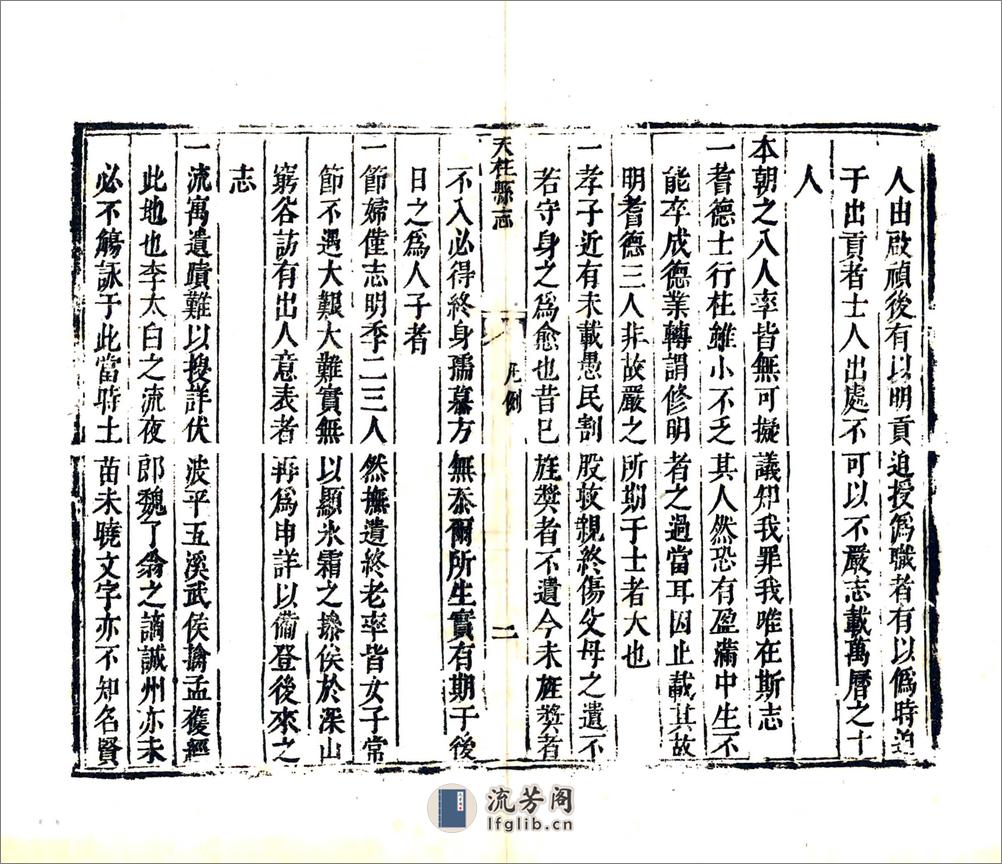 人由啟禎後有以明貢追授爲職者有以僞時追
于出貢者士人出處不可以不嚴志載萬曆之十
人
本朝之八人率皆無可擬議知我罪我唯在斯志
一耆德士行柱雖小不乏其人然恐有盈滿中生不
能卒成德業轉謂修明者之過當耳因止載其故
明耆德三人非故嚴之所期于士者大也
一孝子近有未載愚民割股救親終傷父母之遺不
若守身之爲愈也昔已旌獎者不遺今未旌獎者
天柱縣志
凡例
二
不入必得終身孺慕方無忝爾所生實有期于後
日之爲人子者
一節婦僅志明季二三人然撫遺終老率皆女子常
節不遇大艱大難實無以顯氷霜之操俟於深山
窮谷訪有出人意表者再爲申詳以備登後來之
志
一流寓遺蹟難以搜詳伏波平五溪武侯擒孟獲經
此地也李太白之流夜郎魏了翁之謫誠州亦未
必不觴詠于此當時土苗未曉文字亦不知名賢
流芳阁
lfglib.cn